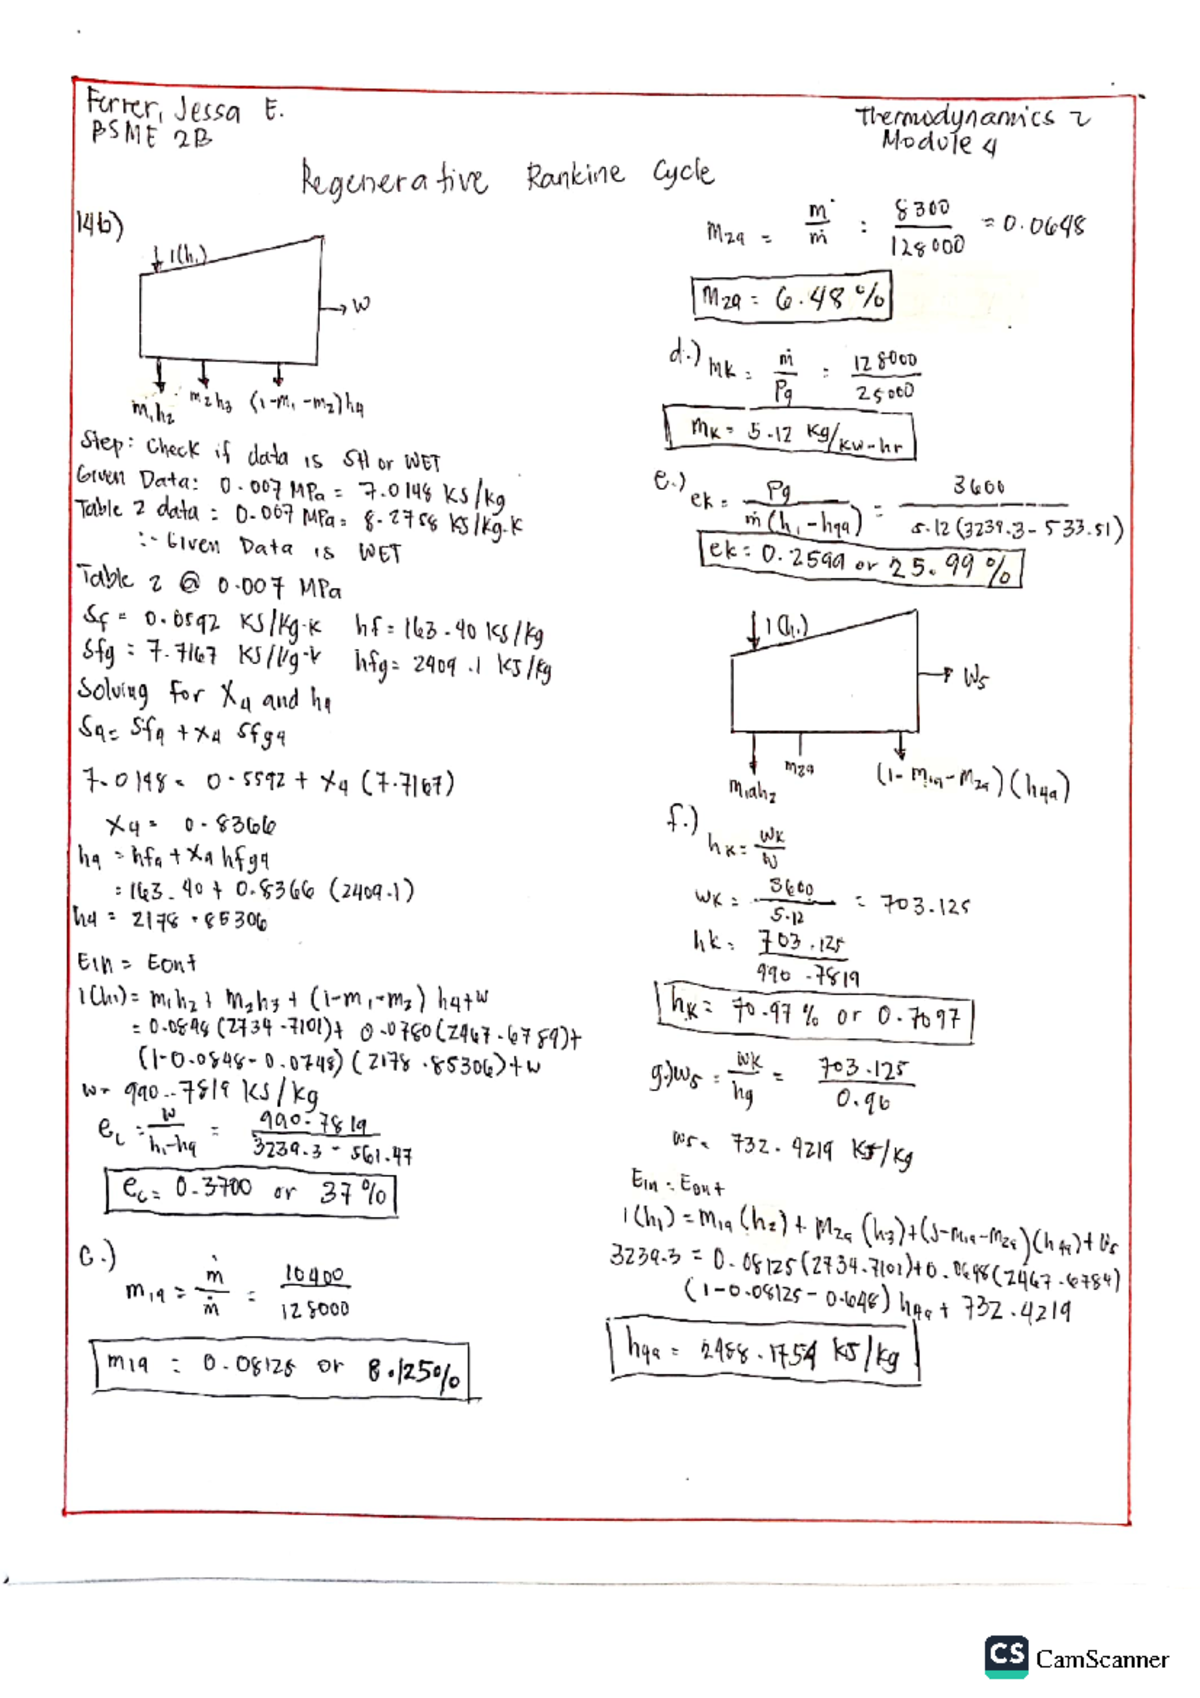 Ferrer, Jessa E.
BSME 2B
Thermodynamics 2
Module 4
Regenerative Rankine Cycle
14b)
1(h₁)
W
m₁h₂ m₂h₃ (1-m₁-m₂)h4
Step: Check if data is SH or WET
Given Data: 0.007 MPa = 7.0148 KJ/kg
Table 2 data: 0.007 MPa = 8.2758 KJ/kg.K
∴ Given Data is WET
Table 2 @ 0.007 MPa
Sf = 0.5592 KJ/kg.K hf = 163.40 KJ/kg
Sfg = 7.7167 KJ/kg.K hfg = 2409.1 KJ/kg
Solving for X4 and h4
S4 = Sf4 + X4 Sfg4
7.0148 = 0.5592 + X4 (7.7167)
X4 = 0.8366
h4 = hf4 + X4 hfg4
= 163.40 + 0.8366 (2409.1)
h4 = 2178.85306
Ein = Eout
1(h₁) = m₁h₂ + m₂h₃ + (1-m₁-m₂) h4+w
= 0.0848 (2734.7101) + 0.0780 (2467.6789) +
(1-0.0848-0.0748) (2178.85306) + w
w = 990.7819 KJ/kg
ec = w / h₁-h4 = 990.7819 / 3239.3 - 561.47
ec = 0.3700 or 37%
C.)
m1a = ṁ / ṁ = 10400 / 128000
m1a = 0.08125 or 8.125%
m2a = ṁ / ṁ = 8300 / 128000 = 0.0648
m2a = 6.48%
d.) mk = ṁ / Pg = 128000 / 25000
mk = 5.12 kg/kw-hr
e.) ek = Pg / ṁ(h₁-h4a) = 3600 / 5.12 (3239.3 - 533.51)
ek = 0.2599 or 25.99%
1(h₁)
W5
m1ah2 m2a (1-m1a-m2a)(h4a)
f.) hk = wk / w
wk = 3600 / 5.12 = 703.125
hk = 703.125 / 990.7819
hk = 70.97% or 0.7097
g.) w5 = wk / hg = 703.125 / 0.96
w5 = 732.4219 KJ/kg
Ein = Eout
1(h₁) = m1a (h2) + m2a (h3) + (1-m1a-m2a)(h4a) + W5
3239.3 = 0.08125 (2734.7101) + 0.0648 (2467.6784)
(1-0.08125-0.648) h4a + 732.4219
h4a = 2488.1754 KJ/kg
CS CamScanner